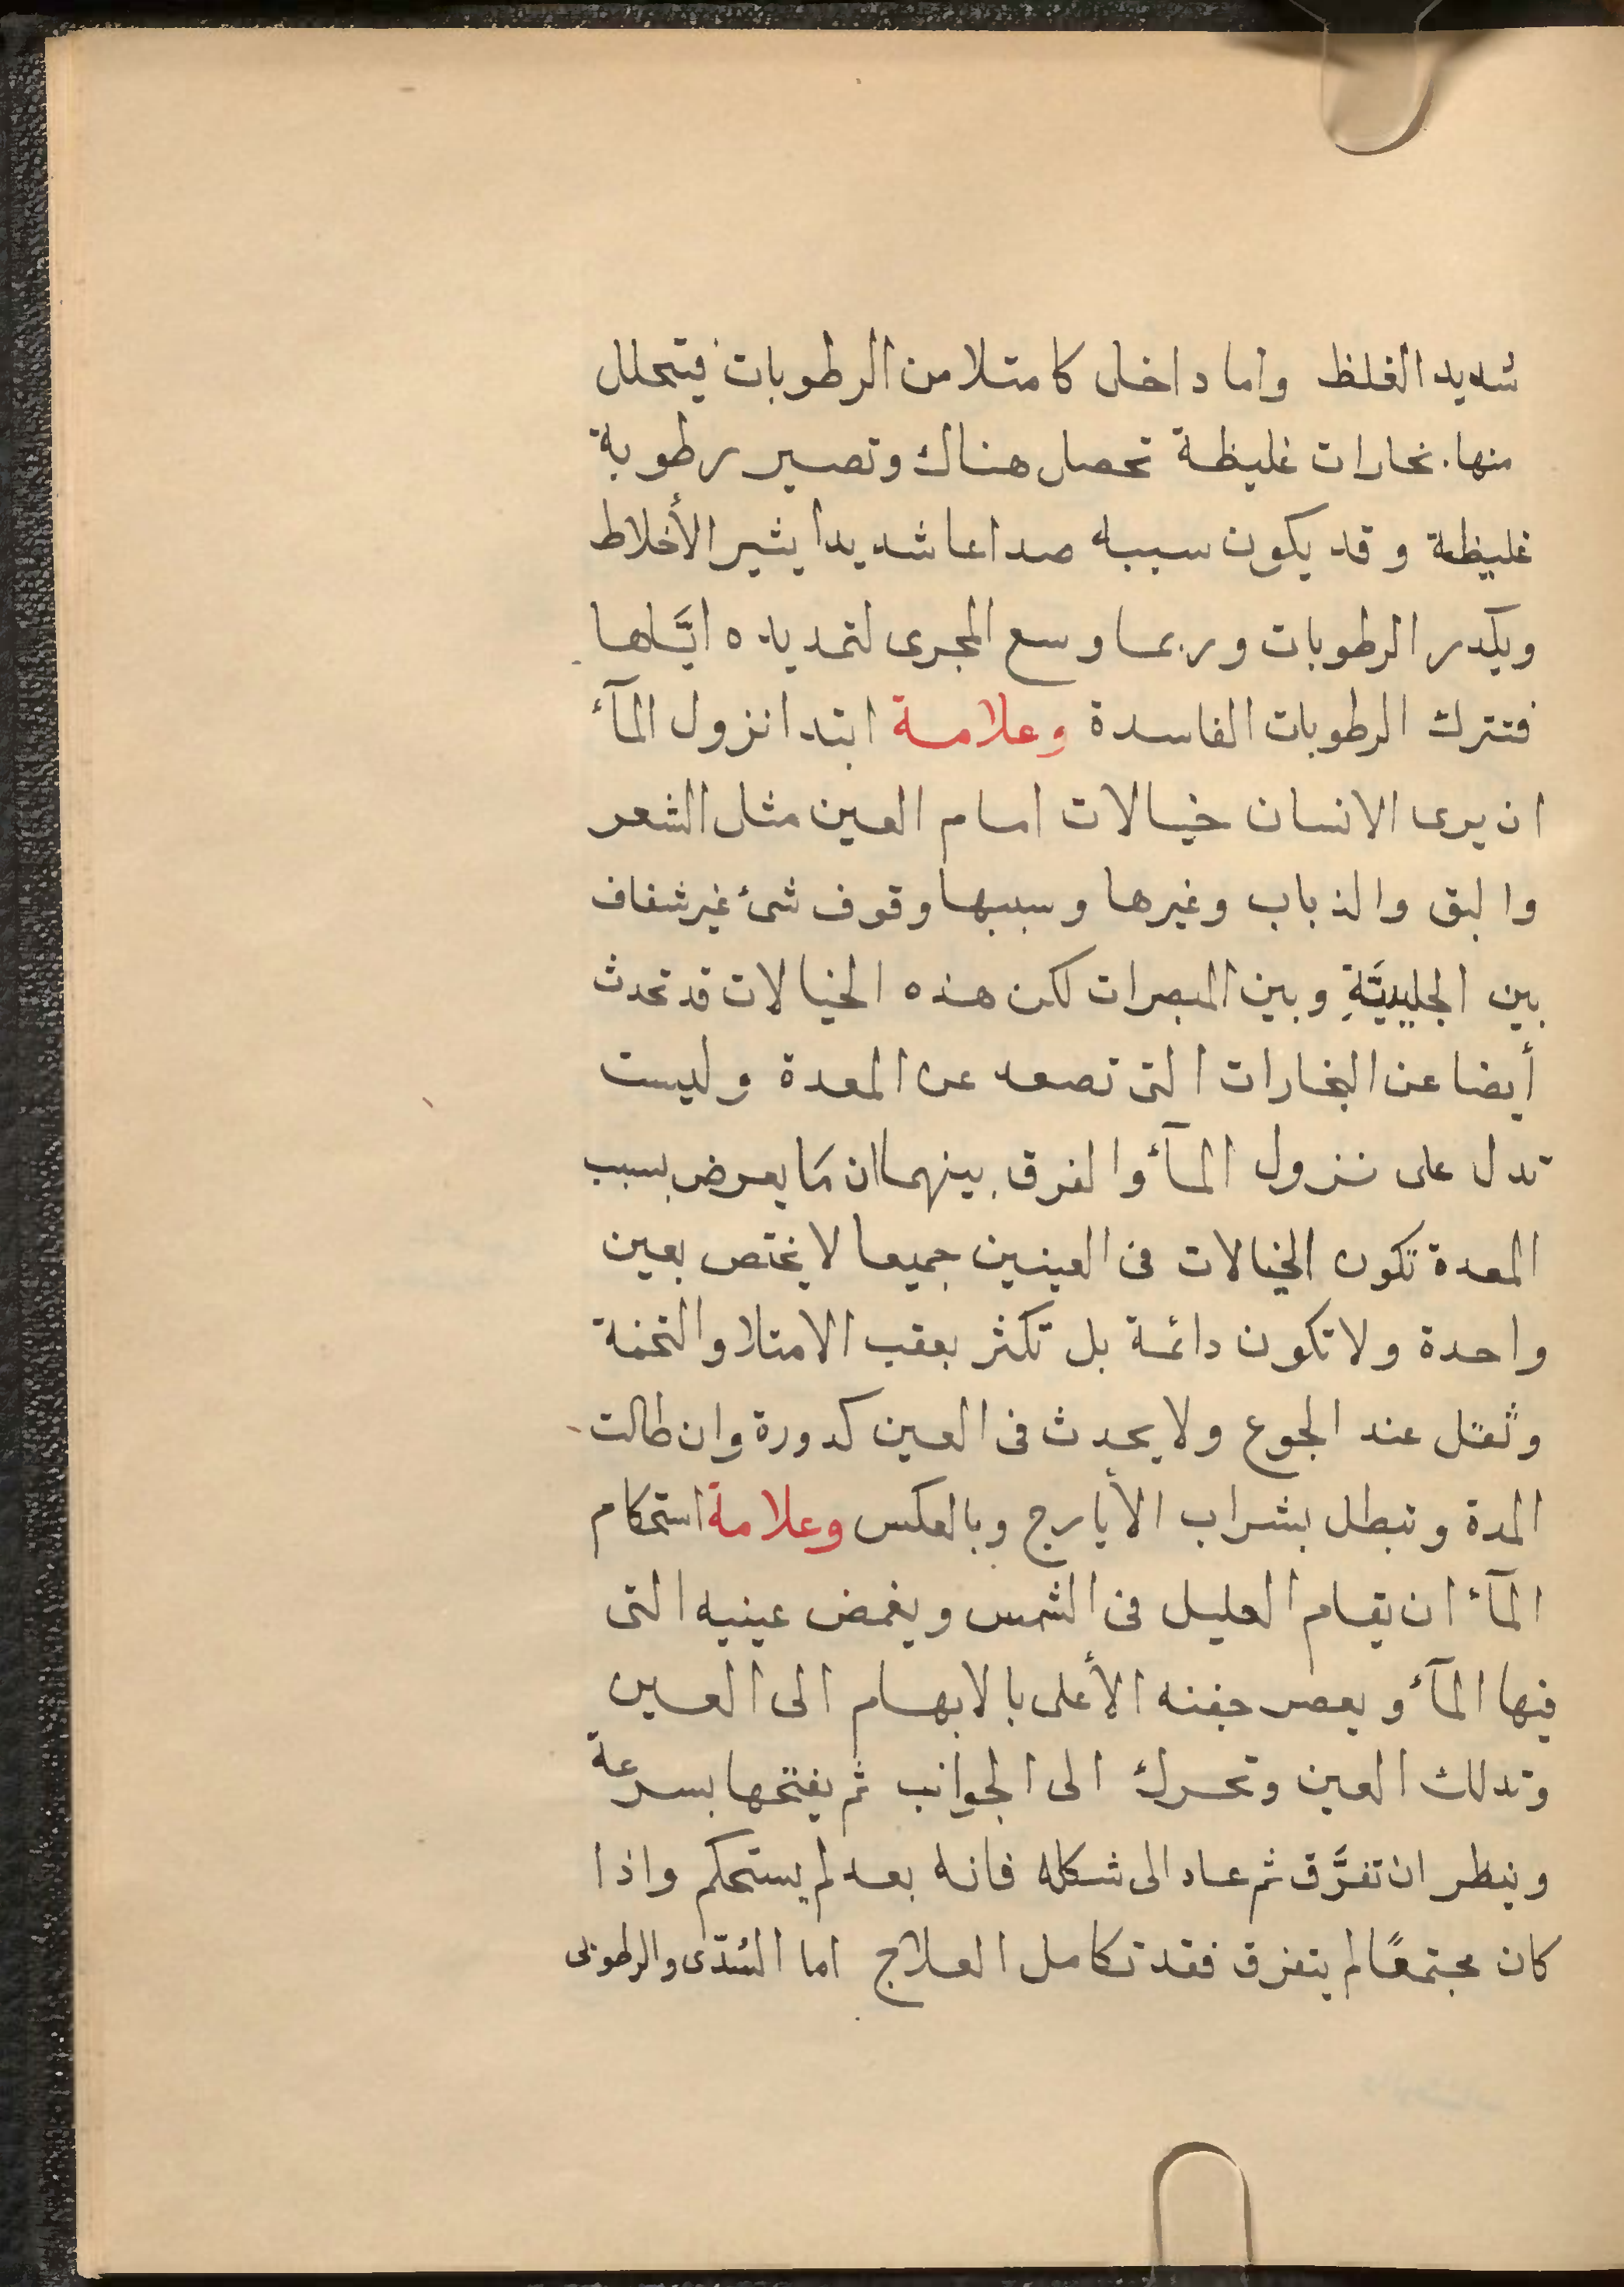 شديد الغلظ واما داخل كامتلا من الرطوبات فيتحلل
منها بخارات غليظة تحصل هناك وتصير رطوبة
غليظة وقد يكون سببه صداعا شديدا يثير الأخلاط
ويكدر الرطوبات وربما وسع المجرى لتمديده ايَّاها
فتترك الرطوبات الفاسدة وعلامة ابتدا نزول المآء
ان يرى الانسان خيالات امام العين مثل الشعر
والبق والذباب وغيرها وسببها وقوف شئ غير شفاف
بين الجليديَّةِ وبين المبصرات لكن هذه الخيالات قد تحدث
أيضا عن البخارات التى تصعد عن المعدة وليست
تدل على نزول المآء والفرق بينهما ان مَا يعرض بسبب
المعدة تكون الخيالات فى العينين جميعا لا يختص بعين
واحدة ولا تكون دائمة بل تكثر بعقب الامتلا والتخمة
وتقل عند الجوع ولا يحدث فى العين كدورة وان طالت
المدة وتبطل بشراب الأيارج وبالعكس وعلامة استحكام
المآء ان يقام العليل فى الشمس ويغمض عينيه التى
فيها المآء ويعصر جفنه الأعلى بالابهام الى العين
وتدلك العين وتحرك الى الجوانب ثم يفتحها بسرعة
وينطر ان تفرَّق ثم عاد الى شكله فانه بعد لم يستحكم واذا
كان مجتمعًا لم يتفرق فقد تكامل العلاج اما السُدّى والرطوبى